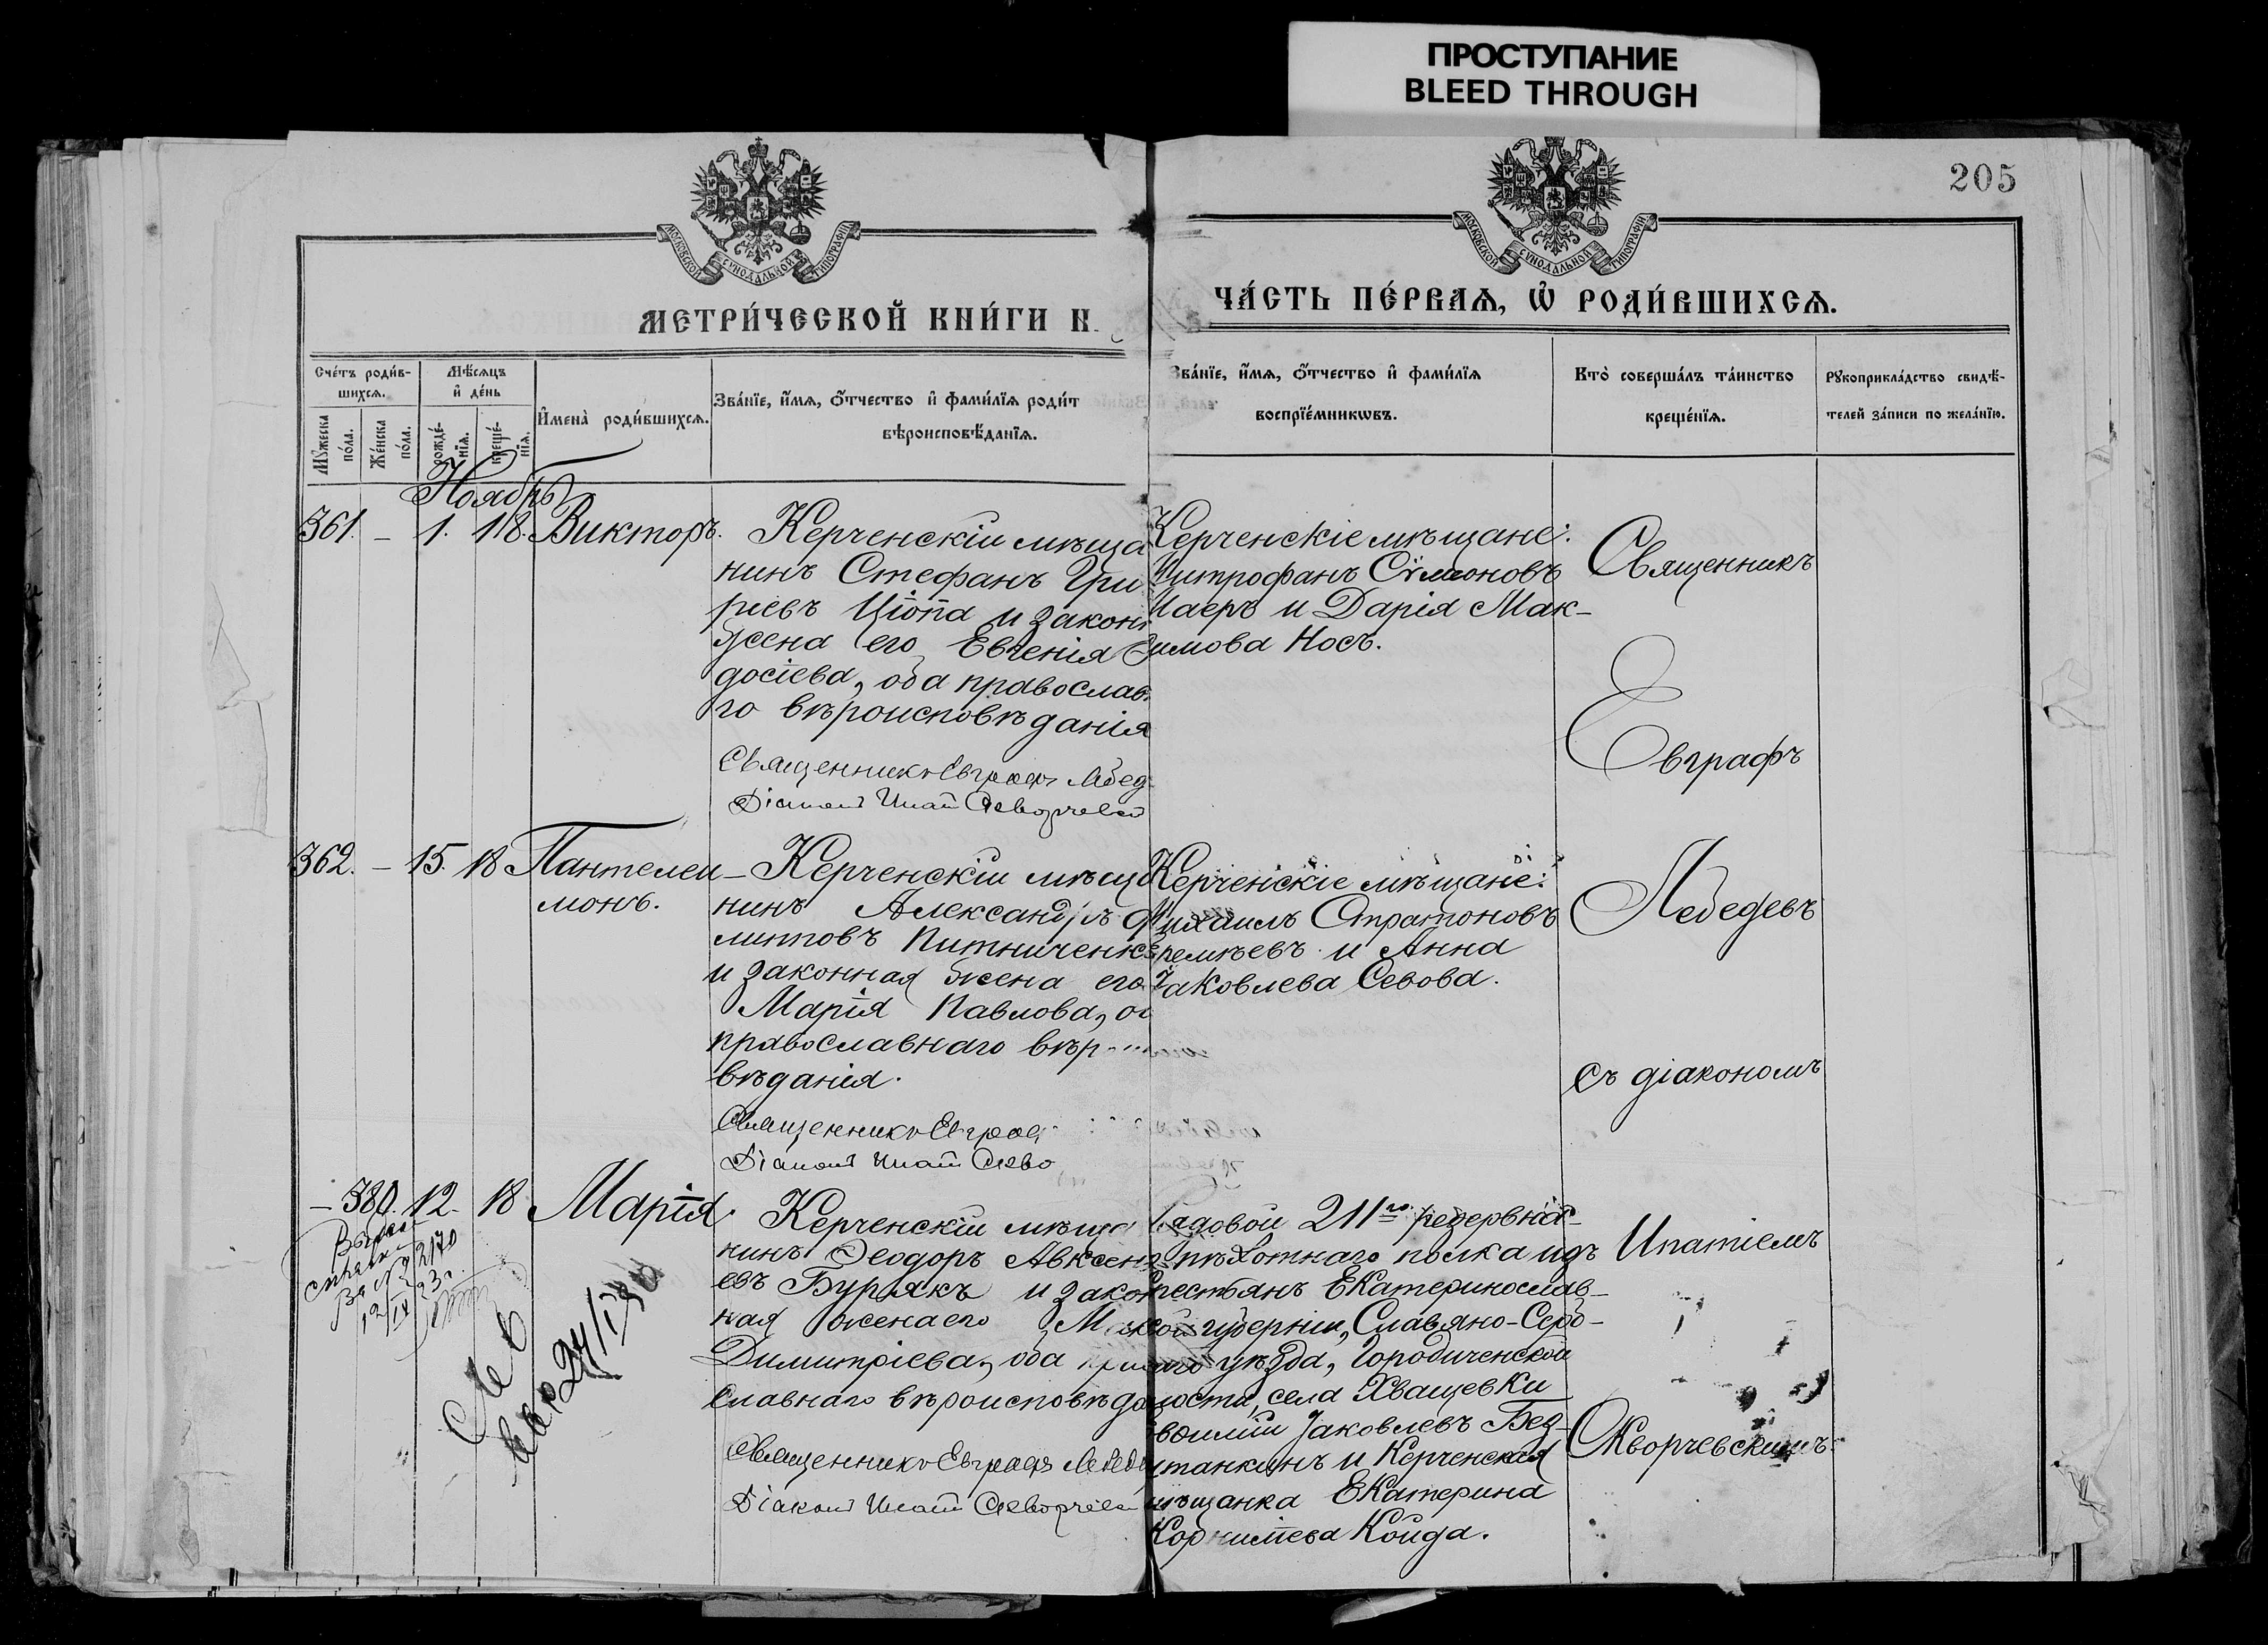 ПРОСТУПАНИЕ
BLEED THROUGH
205
МОСКОВСКОЙ СѴНОДАЛЬНОЙ ТИПОГРАФІИ
МОСКОВСКОЙ СѴНОДАЛЬНОЙ ТИПОГРАФІИ
МЕТРИ́ЧЕСКОЙ КНИ́ГИ Н
ЧА́СТЬ ПЕ́РВАѦ, Ѡ҆ РОДИ́ВШИХСѦ.
Сче́тъ роди́в-
шихсѧ.
Мѣ́сѧцъ
и҆ де́нь
Мꙋ́жеска
по́ла.
Же́нска
по́ла.
рожде́-
нїѧ.
креще́-
нїѧ.
И҆мена̀ роди́вшихсѧ.
Зва́нїе, и҆́мѧ, ѻ҆́тчество и҆ фами́лїѧ роди́т
вѣроисповѣ́данїѧ.
Зва́нїе, и҆́мѧ, ѻ҆́тчество и҆ фами́лїѧ
воспрїе́мникѡвъ.
Кто̀ соверша́лъ та́инство
креще́нїѧ.
Рꙋкоприкла́дство свидѣ́-
телей за́писи по жела́нїю.
Ноябрь
361. – 1. 18. Викторъ.
Керченскій мѣща
нинъ Стефанъ Гри
рьевъ Цюпа и закон
жена его Евгенія Ѳ
досіева, оба православ
го вѣроисповѣданія
Священникъ Евграфъ Лебед
Діаконъ Ипат Скворчевс
Керченскіе мѣщане:
Митрофанъ Сѵмоновъ
Маеръ и Дарія Мак-
симова Носъ.
Священникъ
Евграфъ
Лебедевъ
съ діакономъ
Ипатіемъ
Скворчевскимъ.
362. – 15. 18 Пантелеи-
монъ.
Керченскій мѣща
нинъ Александръ Фи
липповъ Питниченк
и законная жена его
Марія Павлова, о
православнаго вѣр
вѣданія.
Священникъ Евграф
Діаконъ Ипат Скво
Керченскіе мѣщане:
Михаилъ Стратоновъ
Еремѣевъ и Анна
Іаковлева Севова.
– 380. 12. 18 Марія.
2170
24/I
Керченскій мѣща
нинъ Ѳеодоръ Авксент
евъ Бурякъ и закон
ная жена его М
Димитріева, оба пра
славнаго вѣроисповѣда
Священникъ Евграфъ Лебеде
Діаконъ Ипат Скворчев
Рядовой 211го резервна-
пѣхотнаго полка изъ
крестьянъ Екатеринослав-
ской губерніи, Славяно-Серб-
уѣзда, Городиченской
волости, села Хващевки
Іаковлевъ Без-
штанкинъ и Керченская
мѣщанка Екатерина
Корнилиева Койда.